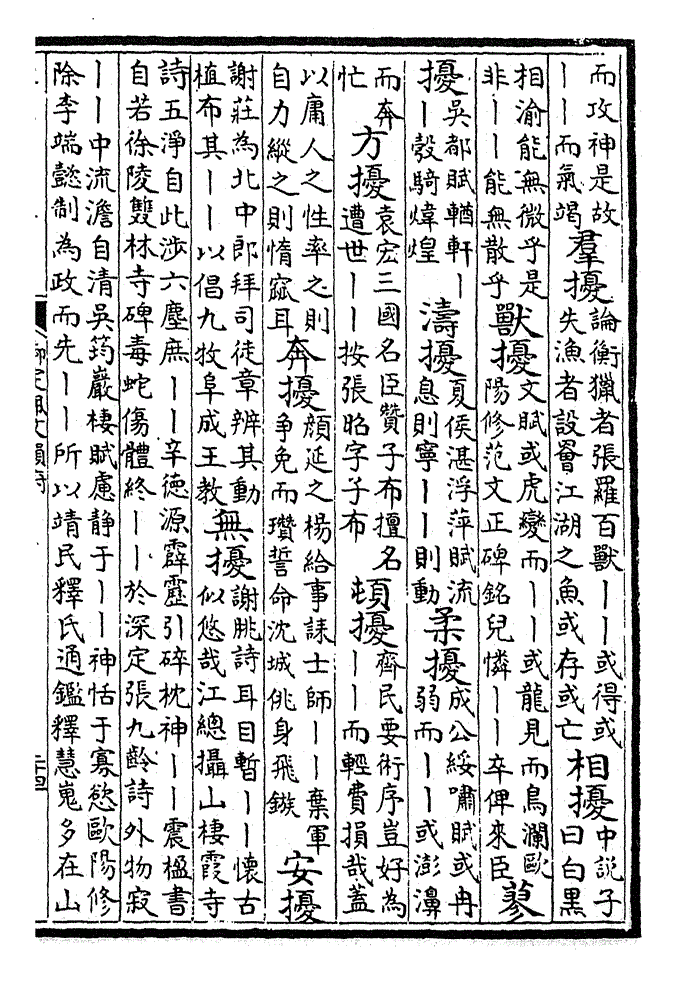 而攻神是故丨丨而氣竭 羣擾 論衡獵者張羅百獸丨丨或得或失漁者設罾江湖之魚或存或亡 相擾 中説子曰白黒
相渝能無微乎是非丨丨能無散乎 獸擾 文賦或虎變而丨丨或龍見而鳥瀾歐陽修范文正碑銘兒憐丨丨卒俾來臣 蓼
擾 吳都賦輶軒丨丨彀騎煒煌 濤擾 夏侯湛浮萍賦流息則寧丨丨則動 柔擾 成公綏嘯賦或冉弱而丨丨或澎濞
而奔忙 方擾 袁宏三國名臣贊子布擅名遭世丨丨按張昭字子布 頓擾 齊民要術序豈好為丨丨而輕費損哉蓋
以庸人之性率之則自力縱之則惰窳耳 奔擾 顔延之楊給事誄士師丨丨棄軍爭免而瓚誓命沈城佻身飛鏃 安擾
謝莊為北中郎拜司徒章辨其動植布其丨丨以倡九牧阜成王教 無擾 謝朓詩耳目暫丨丨懷古似悠哉江總攝山棲霞寺
詩五淨自此涉六塵庶丨丨辛德源霹靂引碎枕神丨丨震楹書自若徐陵雙林寺碑毒蛇傷體終丨丨於深定張九齡詩外物寂
丨丨中流澹自清吳筠巖棲賦慮静于丨丨神恬于寡慾歐陽修除李端懿制為政而先丨丨所以靖民釋氏通鑑釋慧嵬多在山
御定佩文韻府